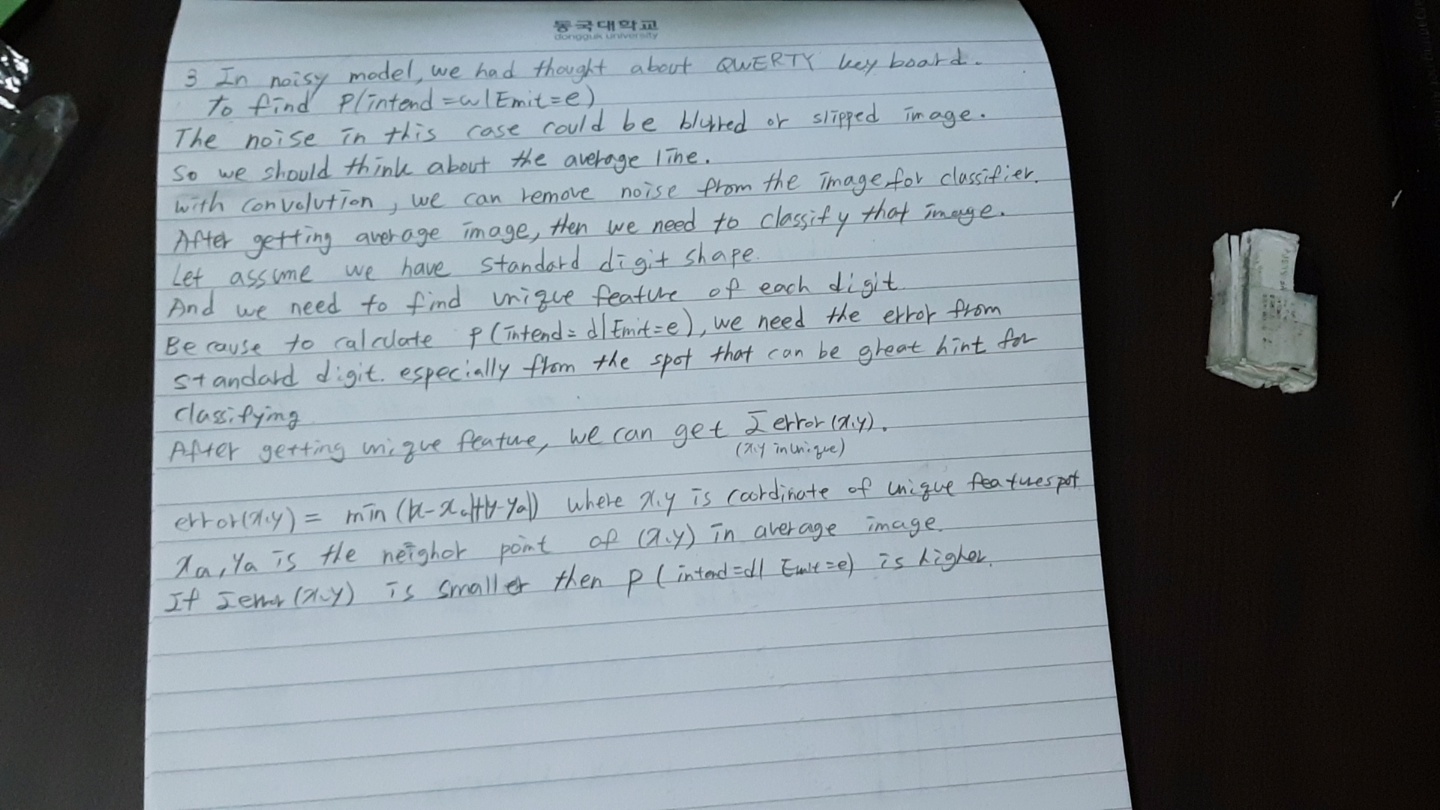 동국대학교
dongguk university
3 In noisy model, we had thought about QWERTY key board.
To find P(intend=w|Emit=e)
The noise in this case could be blurred or slipped image.
So we should think about the average line.
with convolution, we can remove noise from the image for classifier.
After getting average image, then we need to classify that image.
Let assume we have standard digit shape.
And we need to find unique feature of each digit
Because to calculate P(intend=d|Emit=e), we need the error from
standard digit. especially from the spot that can be great hint for
classifying
After getting unique feature, we can get Σ error(x,y).
(x,y in unique)
error(x,y) = min (|x-xa|+|y-ya|) where x,y is coordinate of unique feature spot
xa, ya is the neighor point of (x,y) in average image.
If Σerror(x,y) is smaller then P(intend=d|Emit=e) is higher.